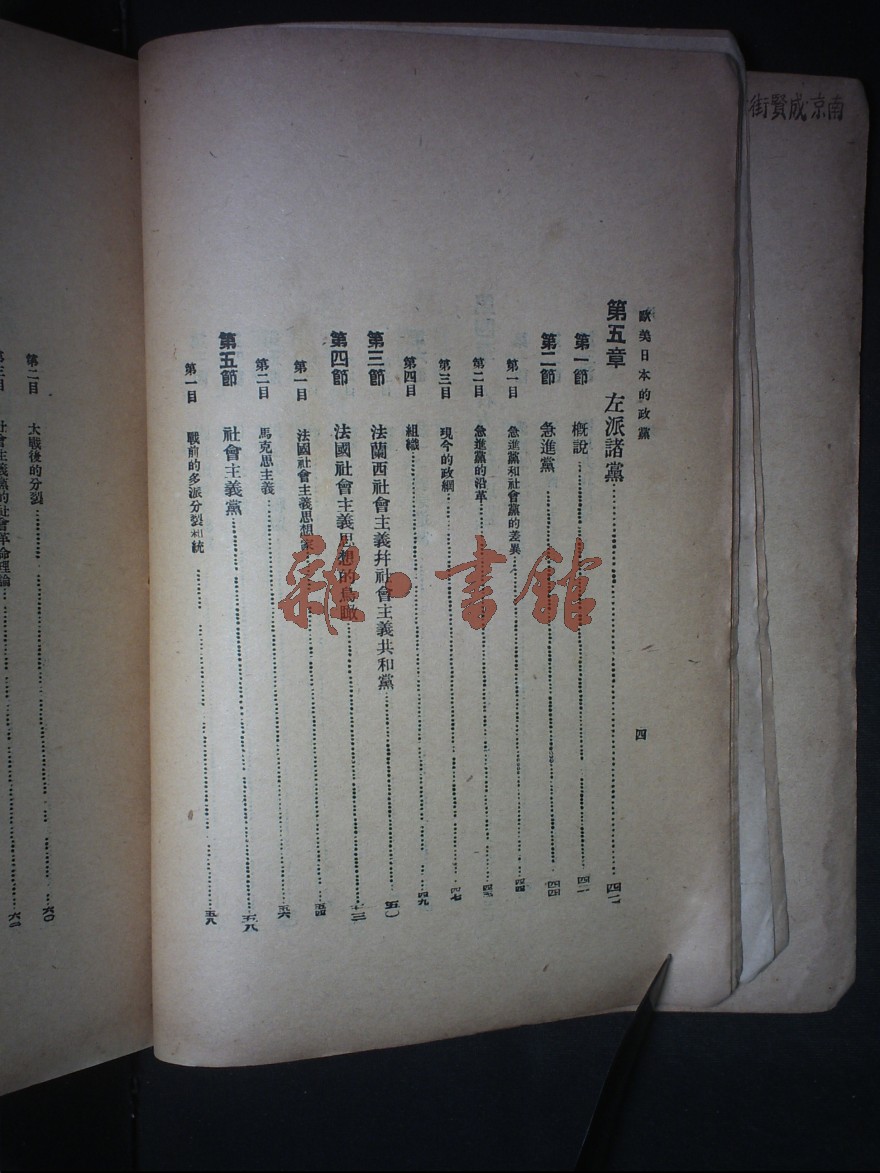 南京成賢街
歐美日本的政黨
四
第五章 左派諸黨……四二
第一節 概説……四二
第二節 急進黨……四四
第一目 急進黨和社會黨的差異……四四
第二目 急進黨的沿革……四五
第三目 現今的政綱……四七
第四目 組織……四九
第三節 法蘭西社會主義幷社會主義共和黨……五〇
第四節 法國社會主義思想的鳥瞰……
第一目 法國社會主義思想家……五四
第二目 馬克思主義……五六
第五節 社會主義黨……五八
第一目 戰前的多派分裂和統……五八
第二目 大戰後的分裂……六〇
第三目 社會主義黨的社會革命理論……六二
雜·書館